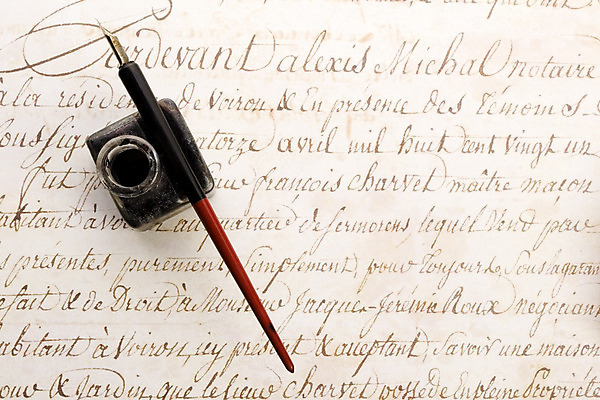 Pardevant alexis Michal notaire
à la résidence de Voiron, & En présence des Témoins S
soussignés atorze avril mil huit cent vingt un
fut p françois charvet maître maçon
habitant à au quartier de sermorens lequel vend par
s présentes, purement, simplement, pour Toujours, Sous la garan
efait & de Droit, à Monsieur Jacques-Jérémie Roux négociant
habitant à Voiron, icy présent & acceptant, Savoir une maison
& Jardin, que le sieur charvet possède En pleine Propriété